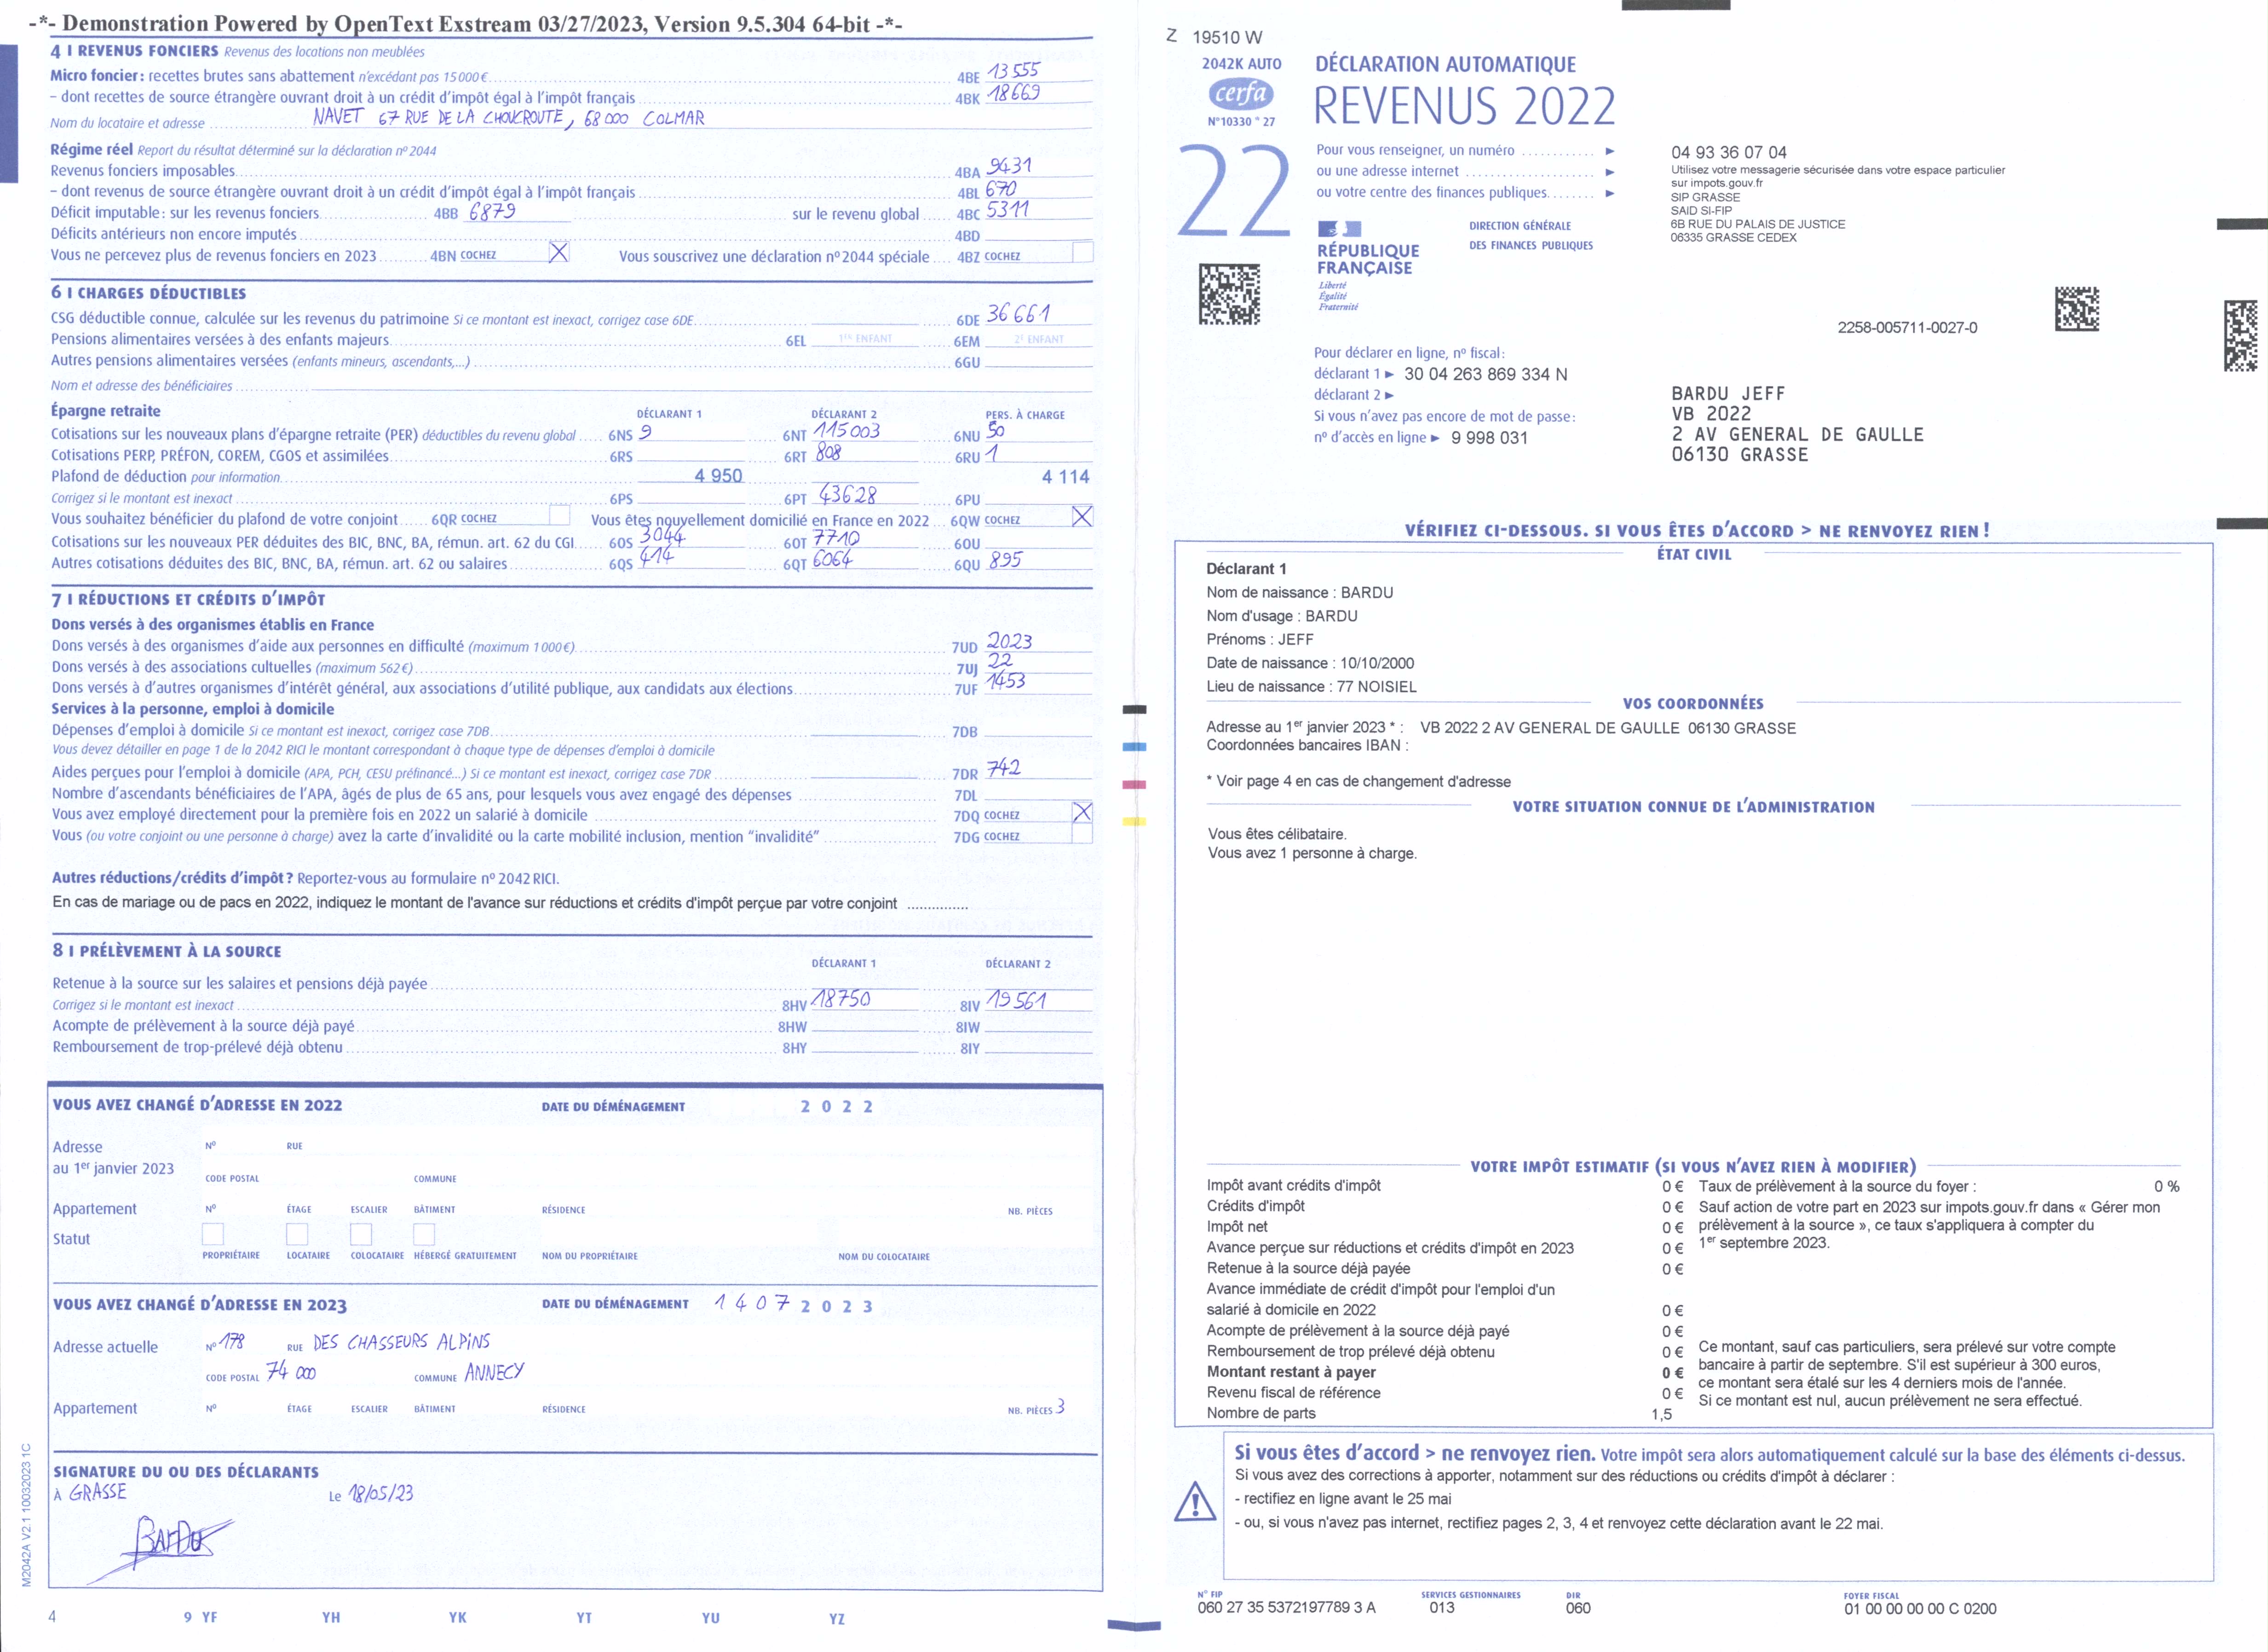 -*- Demonstration Powered by OpenText Exstream 03/27/2023, Version 9.5.304 64-bit -*-
4 I REVENUS FONCIERS Revenus des locations non meublées
Micro foncier : recettes brutes sans abattement n'excédant pas 15 000 € 4BE 13 555
– dont recettes de source étrangère ouvrant droit à un crédit d'impôt égal à l'impôt français 4BK 18669
Nom du locataire et adresse NAVET 67 RUE DE LA CHOUCROUTE, 68 000 COLMAR
Régime réel Report du résultat déterminé sur la déclaration nº 2044
Revenus fonciers imposables 4BA 9431
– dont revenus de source étrangère ouvrant droit à un crédit d'impôt égal à l'impôt français 4BL 670
Déficit imputable : sur les revenus fonciers 4BB 6879 sur le revenu global 4BC 5311
Déficits antérieurs non encore imputés 4BD
Vous ne percevez plus de revenus fonciers en 2023 4BN COCHEZ X Vous souscrivez une déclaration nº 2044 spéciale 4BZ COCHEZ
6 I CHARGES DÉDUCTIBLES
CSG déductible connue, calculée sur les revenus du patrimoine Si ce montant est inexact, corrigez case 6DE 6DE 36661
Pensions alimentaires versées à des enfants majeurs 6EL 1ER ENFANT 6EM 2E ENFANT
Autres pensions alimentaires versées (enfants mineurs, ascendants,...) 6GU
Nom et adresse des bénéficiaires
Épargne retraite DÉCLARANT 1 DÉCLARANT 2 PERS. À CHARGE
Cotisations sur les nouveaux plans d'épargne retraite (PER) déductibles du revenu global 6NS 9 6NT 115003 6NU 50
Cotisations PERP, PRÉFON, COREM, CGOS et assimilées 6RS 6RT 808 6RU 1
Plafond de déduction pour information 4 950 4 114
Corrigez si le montant est inexact 6PS 6PT 43628 6PU
Vous souhaitez bénéficier du plafond de votre conjoint 6QR COCHEZ Vous êtes nouvellement domicilié en France en 2022 6QW COCHEZ X
Cotisations sur les nouveaux PER déduites des BIC, BNC, BA, rémun. art. 62 du CGI 6OS 3044 6OT 7710 6OU
Autres cotisations déduites des BIC, BNC, BA, rémun. art. 62 ou salaires 6QS 414 6QT 6064 6QU 895
7 I RÉDUCTIONS ET CRÉDITS D'IMPÔT
Dons versés à des organismes établis en France
Dons versés à des organismes d'aide aux personnes en difficulté (maximum 1 000 €) 7UD 2023
Dons versés à des associations cultuelles (maximum 562 €) 7UJ 22
Dons versés à d'autres organismes d'intérêt général, aux associations d'utilité publique, aux candidats aux élections 7UF 1453
Services à la personne, emploi à domicile
Dépenses d'emploi à domicile Si ce montant est inexact, corrigez case 7DB 7DB
Vous devez détailler en page 1 de la 2042 RICI le montant correspondant à chaque type de dépenses d'emploi à domicile
Aides perçues pour l'emploi à domicile (APA, PCH, CESU préfinancé...) Si ce montant est inexact, corrigez case 7DR 7DR 742
Nombre d'ascendants bénéficiaires de l'APA, âgés de plus de 65 ans, pour lesquels vous avez engagé des dépenses 7DL
Vous avez employé directement pour la première fois en 2022 un salarié à domicile 7DQ COCHEZ X
Vous (ou votre conjoint ou une personne à charge) avez la carte d'invalidité ou la carte mobilité inclusion, mention "invalidité" 7DG COCHEZ
Autres réductions/crédits d'impôt ? Reportez-vous au formulaire nº 2042 RICI.
En cas de mariage ou de pacs en 2022, indiquez le montant de l'avance sur réductions et crédits d'impôt perçue par votre conjoint ..............
8 I PRÉLÈVEMENT À LA SOURCE
DÉCLARANT 1 DÉCLARANT 2
Retenue à la source sur les salaires et pensions déjà payée
Corrigez si le montant est inexact 8HV 18750 8IV 19561
Acompte de prélèvement à la source déjà payé 8HW 8IW
Remboursement de trop-prélevé déjà obtenu 8HY 8IY
VOUS AVEZ CHANGÉ D'ADRESSE EN 2022 DATE DU DÉMÉNAGEMENT 2 0 2 2
Adresse Nº RUE
au 1er janvier 2023
CODE POSTAL COMMUNE
Appartement Nº ÉTAGE ESCALIER BÂTIMENT RÉSIDENCE NB. PIÈCES
Statut
PROPRIÉTAIRE LOCATAIRE COLOCATAIRE HÉBERGÉ GRATUITEMENT NOM DU PROPRIÉTAIRE NOM DU COLOCATAIRE
VOUS AVEZ CHANGÉ D'ADRESSE EN 2023 DATE DU DÉMÉNAGEMENT 1 4 0 7 2 0 2 3
Adresse actuelle Nº 178 RUE DES CHASSEURS ALPINS
CODE POSTAL 74 000 COMMUNE ANNECY
Appartement Nº ÉTAGE ESCALIER BÂTIMENT RÉSIDENCE NB. PIÈCES 3
SIGNATURE DU OU DES DÉCLARANTS
À GRASSE Le 18/05/23
BARDU
M2042A V2.1 10032023 1C
4 9 YF YH YK YT YU YZ
Z 19510 W
2042K AUTO
cerfa
N° 10330 * 27
22
DÉCLARATION AUTOMATIQUE
REVENUS 2022
Pour vous renseigner, un numéro ► 04 93 36 07 04
ou une adresse internet ► Utilisez votre messagerie sécurisée dans votre espace particulier
sur impots.gouv.fr
ou votre centre des finances publiques ► SIP GRASSE
SAID SI-FIP
6B RUE DU PALAIS DE JUSTICE
06335 GRASSE CEDEX
RÉPUBLIQUE
FRANÇAISE
Liberté
Égalité
Fraternité
DIRECTION GÉNÉRALE
DES FINANCES PUBLIQUES
2258-005711-0027-0
Pour déclarer en ligne, nº fiscal :
déclarant 1 ► 30 04 263 869 334 N
déclarant 2 ►
Si vous n'avez pas encore de mot de passe :
nº d'accès en ligne ► 9 998 031
BARDU JEFF
VB 2022
2 AV GENERAL DE GAULLE
06130 GRASSE
VÉRIFIEZ CI-DESSOUS. SI VOUS ÊTES D'ACCORD > NE RENVOYEZ RIEN !
ÉTAT CIVIL
Déclarant 1
Nom de naissance : BARDU
Nom d'usage : BARDU
Prénoms : JEFF
Date de naissance : 10/10/2000
Lieu de naissance : 77 NOISIEL
VOS COORDONNÉES
Adresse au 1er janvier 2023 * : VB 2022 2 AV GENERAL DE GAULLE 06130 GRASSE
Coordonnées bancaires IBAN :
* Voir page 4 en cas de changement d'adresse
VOTRE SITUATION CONNUE DE L'ADMINISTRATION
Vous êtes célibataire.
Vous avez 1 personne à charge.
VOTRE IMPÔT ESTIMATIF (SI VOUS N'AVEZ RIEN À MODIFIER)
Impôt avant crédits d'impôt 0 €
Crédits d'impôt 0 €
Impôt net 0 €
Avance perçue sur réductions et crédits d'impôt en 2023 0 €
Retenue à la source déjà payée 0 €
Avance immédiate de crédit d'impôt pour l'emploi d'un
salarié à domicile en 2022 0 €
Acompte de prélèvement à la source déjà payé 0 €
Remboursement de trop prélevé déjà obtenu 0 €
Montant restant à payer 0 €
Revenu fiscal de référence 0 €
Nombre de parts 1,5
Taux de prélèvement à la source du foyer : 0 %
Sauf action de votre part en 2023 sur impots.gouv.fr dans « Gérer mon
prélèvement à la source », ce taux s'appliquera à compter du
1er septembre 2023.
Ce montant, sauf cas particuliers, sera prélevé sur votre compte
bancaire à partir de septembre. S'il est supérieur à 300 euros,
ce montant sera étalé sur les 4 derniers mois de l'année.
Si ce montant est nul, aucun prélèvement ne sera effectué.
Si vous êtes d'accord > ne renvoyez rien. Votre impôt sera alors automatiquement calculé sur la base des éléments ci-dessus.
Si vous avez des corrections à apporter, notamment sur des réductions ou crédits d'impôt à déclarer :
- rectifiez en ligne avant le 25 mai
- ou, si vous n'avez pas internet, rectifiez pages 2, 3, 4 et renvoyez cette déclaration avant le 22 mai.
N° FIP SERVICES GESTIONNAIRES DIR FOYER FISCAL
060 27 35 5372197789 3 A 013 060 01 00 00 00 00 C 0200